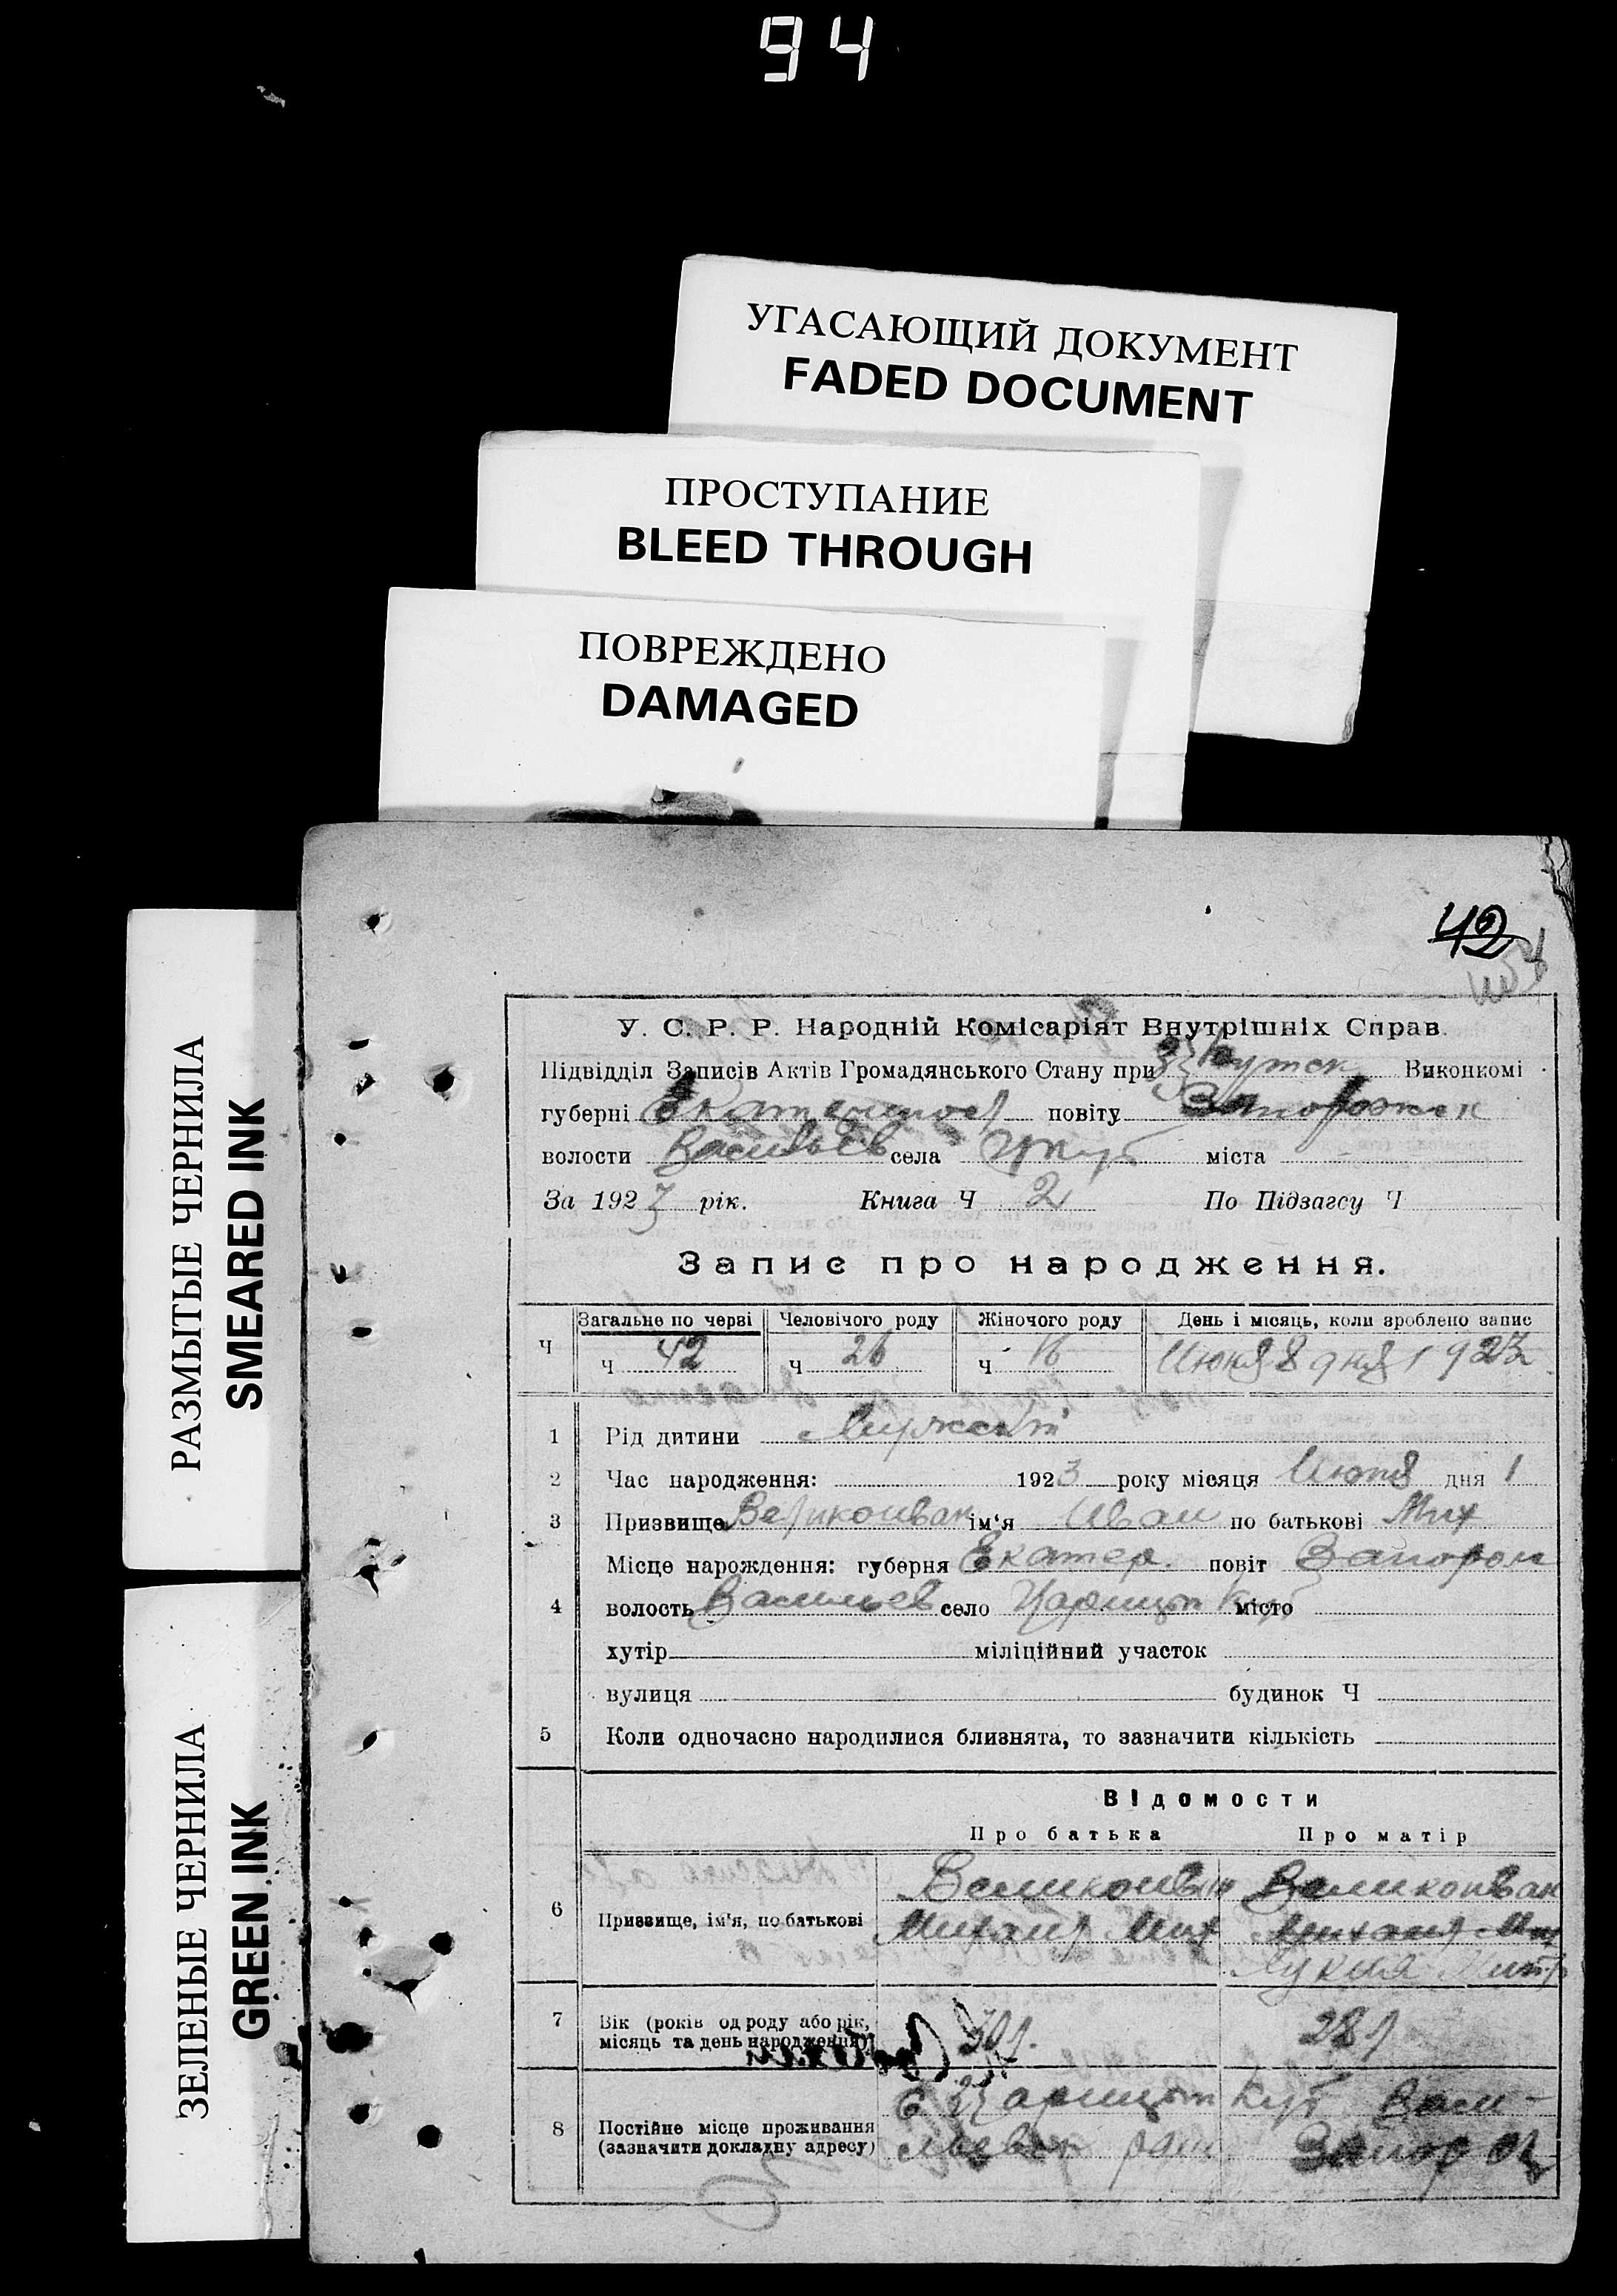 94
УГАСАЮЩИЙ ДОКУМЕНТ
FADED DOCUMENT
ПРОСТУПАНИЕ
BLEED THROUGH
ПОВРЕЖДЕНО
DAMAGED
РАЗМЫТЫЕ ЧЕРНИЛА
SMEARED INK
ЗЕЛЕНЫЕ ЧЕРНИЛА
GREEN INK
42
У. С. Р. Р. Народній Комісаріят Внутрішніх Справ.
Підвідділ Записів Актів Громадянського Стану при Виконкомі
губерні повіту Запорожск
волости Васильев села міста
За 1923 рік. Книга Ч 2 По Підзагсу Ч
Запис про народження.
Ч Загальне по черві Человічого роду Жіночого роду День і місяць, коли зроблено запис
ч 42 ч 26 ч 16 Июня 8 дня 1923
1 Рід дитини Мужской
2 Час народження: 1923 року місяця Июня дня 1
3 Призвище Великоиван ім'я Иван по батькові Мих
Місце нарождення: губерня Екатер. повіт Запорож
4 волость Васильев село Царицын Кут місто
хутір міліційний участок
вулиця будинок Ч
5 Коли одночасно народилися близнята, то зазначити кількість
ВІдомости
Про батька Про матір
6 Призвище, ім'я, по батькові
Великоиван Великоиван
Михаил Мих
7 Вік (років од роду або рік, місяць та день народження) 30 л. 28 л
8 Постійне місце проживання (зазначити докладну адресу)
С Царицын Кут Васи-
льевск